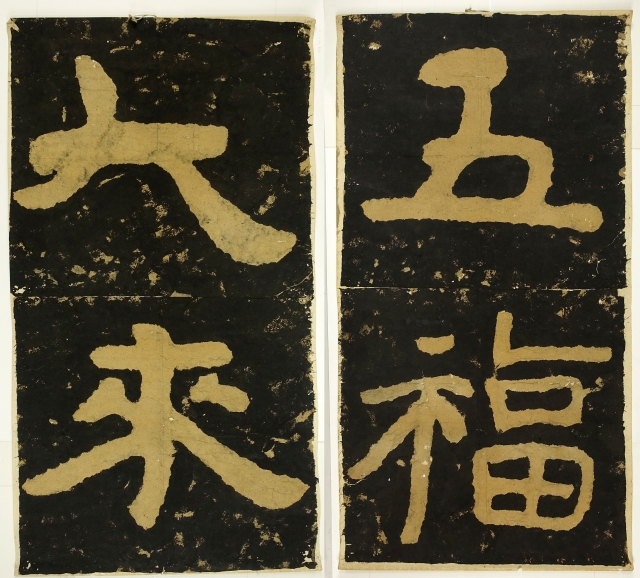 五福
大來